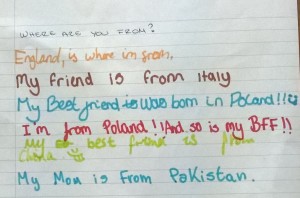 WHERE ARE YOU FROM?
England, is where im from.
My friend is from Italy
My Best friend is was born in Poland!!
I'm from Poland!!And so is my BFF!!
My best friend is from
China
My Mom is From Pakistan.